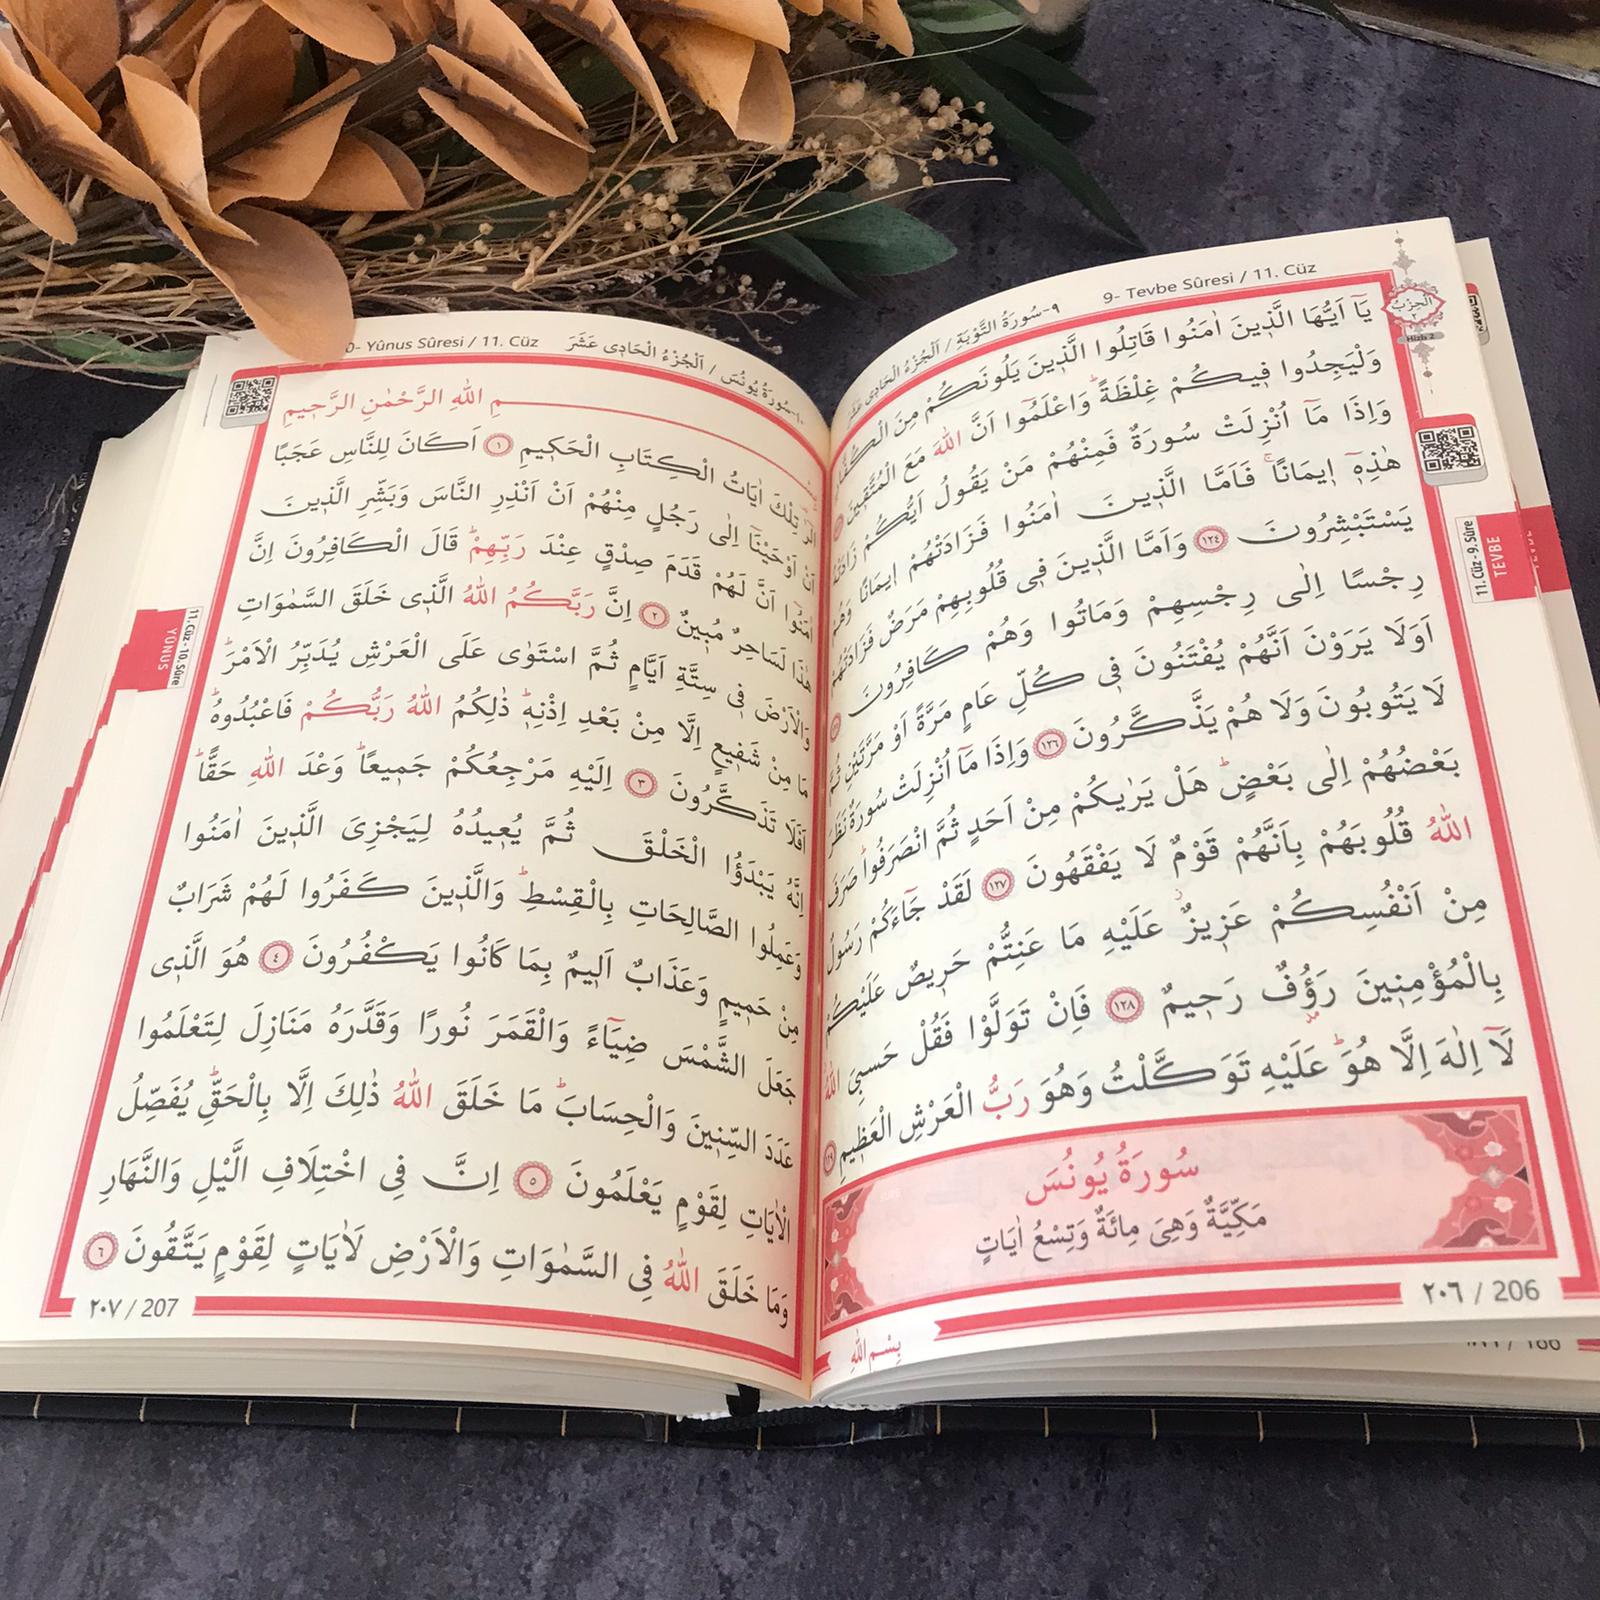 ٩-سُورَةُ التَّوْبَةِ / اَلْجُزْءُ الْحَادِي عَشَرَ 9- Tevbe Sûresi / 11. Cüz
اَلْحِزْبُ
Hizb 2
يَٓا اَيُّهَا الَّذ۪ينَ اٰمَنُوا قَاتِلُوا الَّذ۪ينَ يَلُونَكُمْ مِنَ الْكُفَّارِ
وَلْيَجِدُوا ف۪يكُمْ غِلْظَةًۜ وَاعْلَمُٓوا اَنَّ اللّٰهَ مَعَ الْمُتَّق۪ينَ
وَاِذَا مَٓا اُنْزِلَتْ سُورَةٌ فَمِنْهُمْ مَنْ يَقُولُ اَيُّكُمْ زَادَتْهُ
هٰذِه۪ٓ ا۪يمَانًاۚ فَاَمَّا الَّذ۪ينَ اٰمَنُوا فَزَادَتْهُمْ ا۪يمَانًا وَهُمْ
يَسْتَبْشِرُونَ ﴿١٢٤﴾ وَاَمَّا الَّذ۪ينَ ف۪ي قُلُوبِهِمْ مَرَضٌ فَزَادَتْهُمْ
رِجْسًا اِلٰى رِجْسِهِمْ وَمَاتُوا وَهُمْ كَافِرُونَ
اَوَلَا يَرَوْنَ اَنَّهُمْ يُفْتَنُونَ ف۪ي كُلِّ عَامٍ مَرَّةً اَوْ مَرَّتَيْنِ ثُمَّ
لَا يَتُوبُونَ وَلَا هُمْ يَذَّكَّرُونَ ﴿١٢٦﴾ وَاِذَا مَٓا اُنْزِلَتْ سُورَةٌ نَظَرَ
بَعْضُهُمْ اِلٰى بَعْضٍۜ هَلْ يَرٰيكُمْ مِنْ اَحَدٍ ثُمَّ انْصَرَفُواۜ صَرَفَ
اللّٰهُ قُلُوبَهُمْ بِاَنَّهُمْ قَوْمٌ لَا يَفْقَهُونَ ﴿١٢٧﴾ لَقَدْ جَٓاءَكُمْ رَسُولٌ
مِنْ اَنْفُسِكُمْ عَز۪يزٌ عَلَيْهِ مَا عَنِتُّمْ حَر۪يصٌ عَلَيْكُمْ
بِالْمُؤْمِن۪ينَ رَؤُ۫فٌ رَح۪يمٌ ﴿١٢٨﴾ فَاِنْ تَوَلَّوْا فَقُلْ حَسْبِيَ اللّٰهُ
لَٓا اِلٰهَ اِلَّا هُوَۜ عَلَيْهِ تَوَكَّلْتُ وَهُوَ رَبُّ الْعَرْشِ الْعَظ۪يمِ ﴿١٢٩﴾
سُورَةُ يُونُسَ
مَكِّيَّةٌ وَهِيَ مِائَةٌ وَتِسْعُ اٰيَاتٍ
٢٠٦ / 206
بِسْمِ اللّٰهِ
11. Cüz - 9. Sûre
TEVBE
١٠-سُورَةُ يُونُسَ / اَلْجُزْءُ الْحَادِي عَشَرَ Yûnus Sûresi / 11. Cüz
اللّٰهِ الرَّحْمٰنِ الرَّح۪يمِ
الٓرٰ تِلْكَ اٰيَاتُ الْكِتَابِ الْحَك۪يمِ ﴿١﴾ اَكَانَ لِلنَّاسِ عَجَبًا
اَنْ اَوْحَيْنَٓا اِلٰى رَجُلٍ مِنْهُمْ اَنْ اَنْذِرِ النَّاسَ وَبَشِّرِ الَّذ۪ينَ
اٰمَنُٓوا اَنَّ لَهُمْ قَدَمَ صِدْقٍ عِنْدَ رَبِّهِمْۜ قَالَ الْكَافِرُونَ اِنَّ
هٰذَا لَسَاحِرٌ مُب۪ينٌ ﴿٢﴾ اِنَّ رَبَّكُمُ اللّٰهُ الَّذ۪ي خَلَقَ السَّمٰوَاتِ
وَالْاَرْضَ ف۪ي سِتَّةِ اَيَّامٍ ثُمَّ اسْتَوٰى عَلَى الْعَرْشِ يُدَبِّرُ الْاَمْرَۜ
مَا مِنْ شَف۪يعٍ اِلَّا مِنْ بَعْدِ اِذْنِه۪ۜ ذٰلِكُمُ اللّٰهُ رَبُّكُمْ فَاعْبُدُوهُۜ
اَفَلَا تَذَكَّرُونَ ﴿٣﴾ اِلَيْهِ مَرْجِعُكُمْ جَم۪يعًاۜ وَعْدَ اللّٰهِ حَقًّاۜ
اِنَّهُ يَبْدَؤُا الْخَلْقَ ثُمَّ يُع۪يدُهُ لِيَجْزِيَ الَّذ۪ينَ اٰمَنُوا
وَعَمِلُوا الصَّالِحَاتِ بِالْقِسْطِۜ وَالَّذ۪ينَ كَفَرُوا لَهُمْ شَرَابٌ
مِنْ حَم۪يمٍ وَعَذَابٌ اَل۪يمٌ بِمَا كَانُوا يَكْفُرُونَ ﴿٤﴾ هُوَ الَّذ۪ي
جَعَلَ الشَّمْسَ ضِيَٓاءً وَالْقَمَرَ نُورًا وَقَدَّرَهُ مَنَازِلَ لِتَعْلَمُوا
عَدَدَ السِّن۪ينَ وَالْحِسَابَۜ مَا خَلَقَ اللّٰهُ ذٰلِكَ اِلَّا بِالْحَقِّۚ يُفَصِّلُ
الْاٰيَاتِ لِقَوْمٍ يَعْلَمُونَ ﴿٥﴾ اِنَّ فِي اخْتِلَافِ الَّيْلِ وَالنَّهَارِ
وَمَا خَلَقَ اللّٰهُ فِي السَّمٰوَاتِ وَالْاَرْضِ لَاٰيَاتٍ لِقَوْمٍ يَتَّقُونَ ﴿٦﴾
٢٠٧ / 207
11. Cüz - 10. Sûre
YUNUS